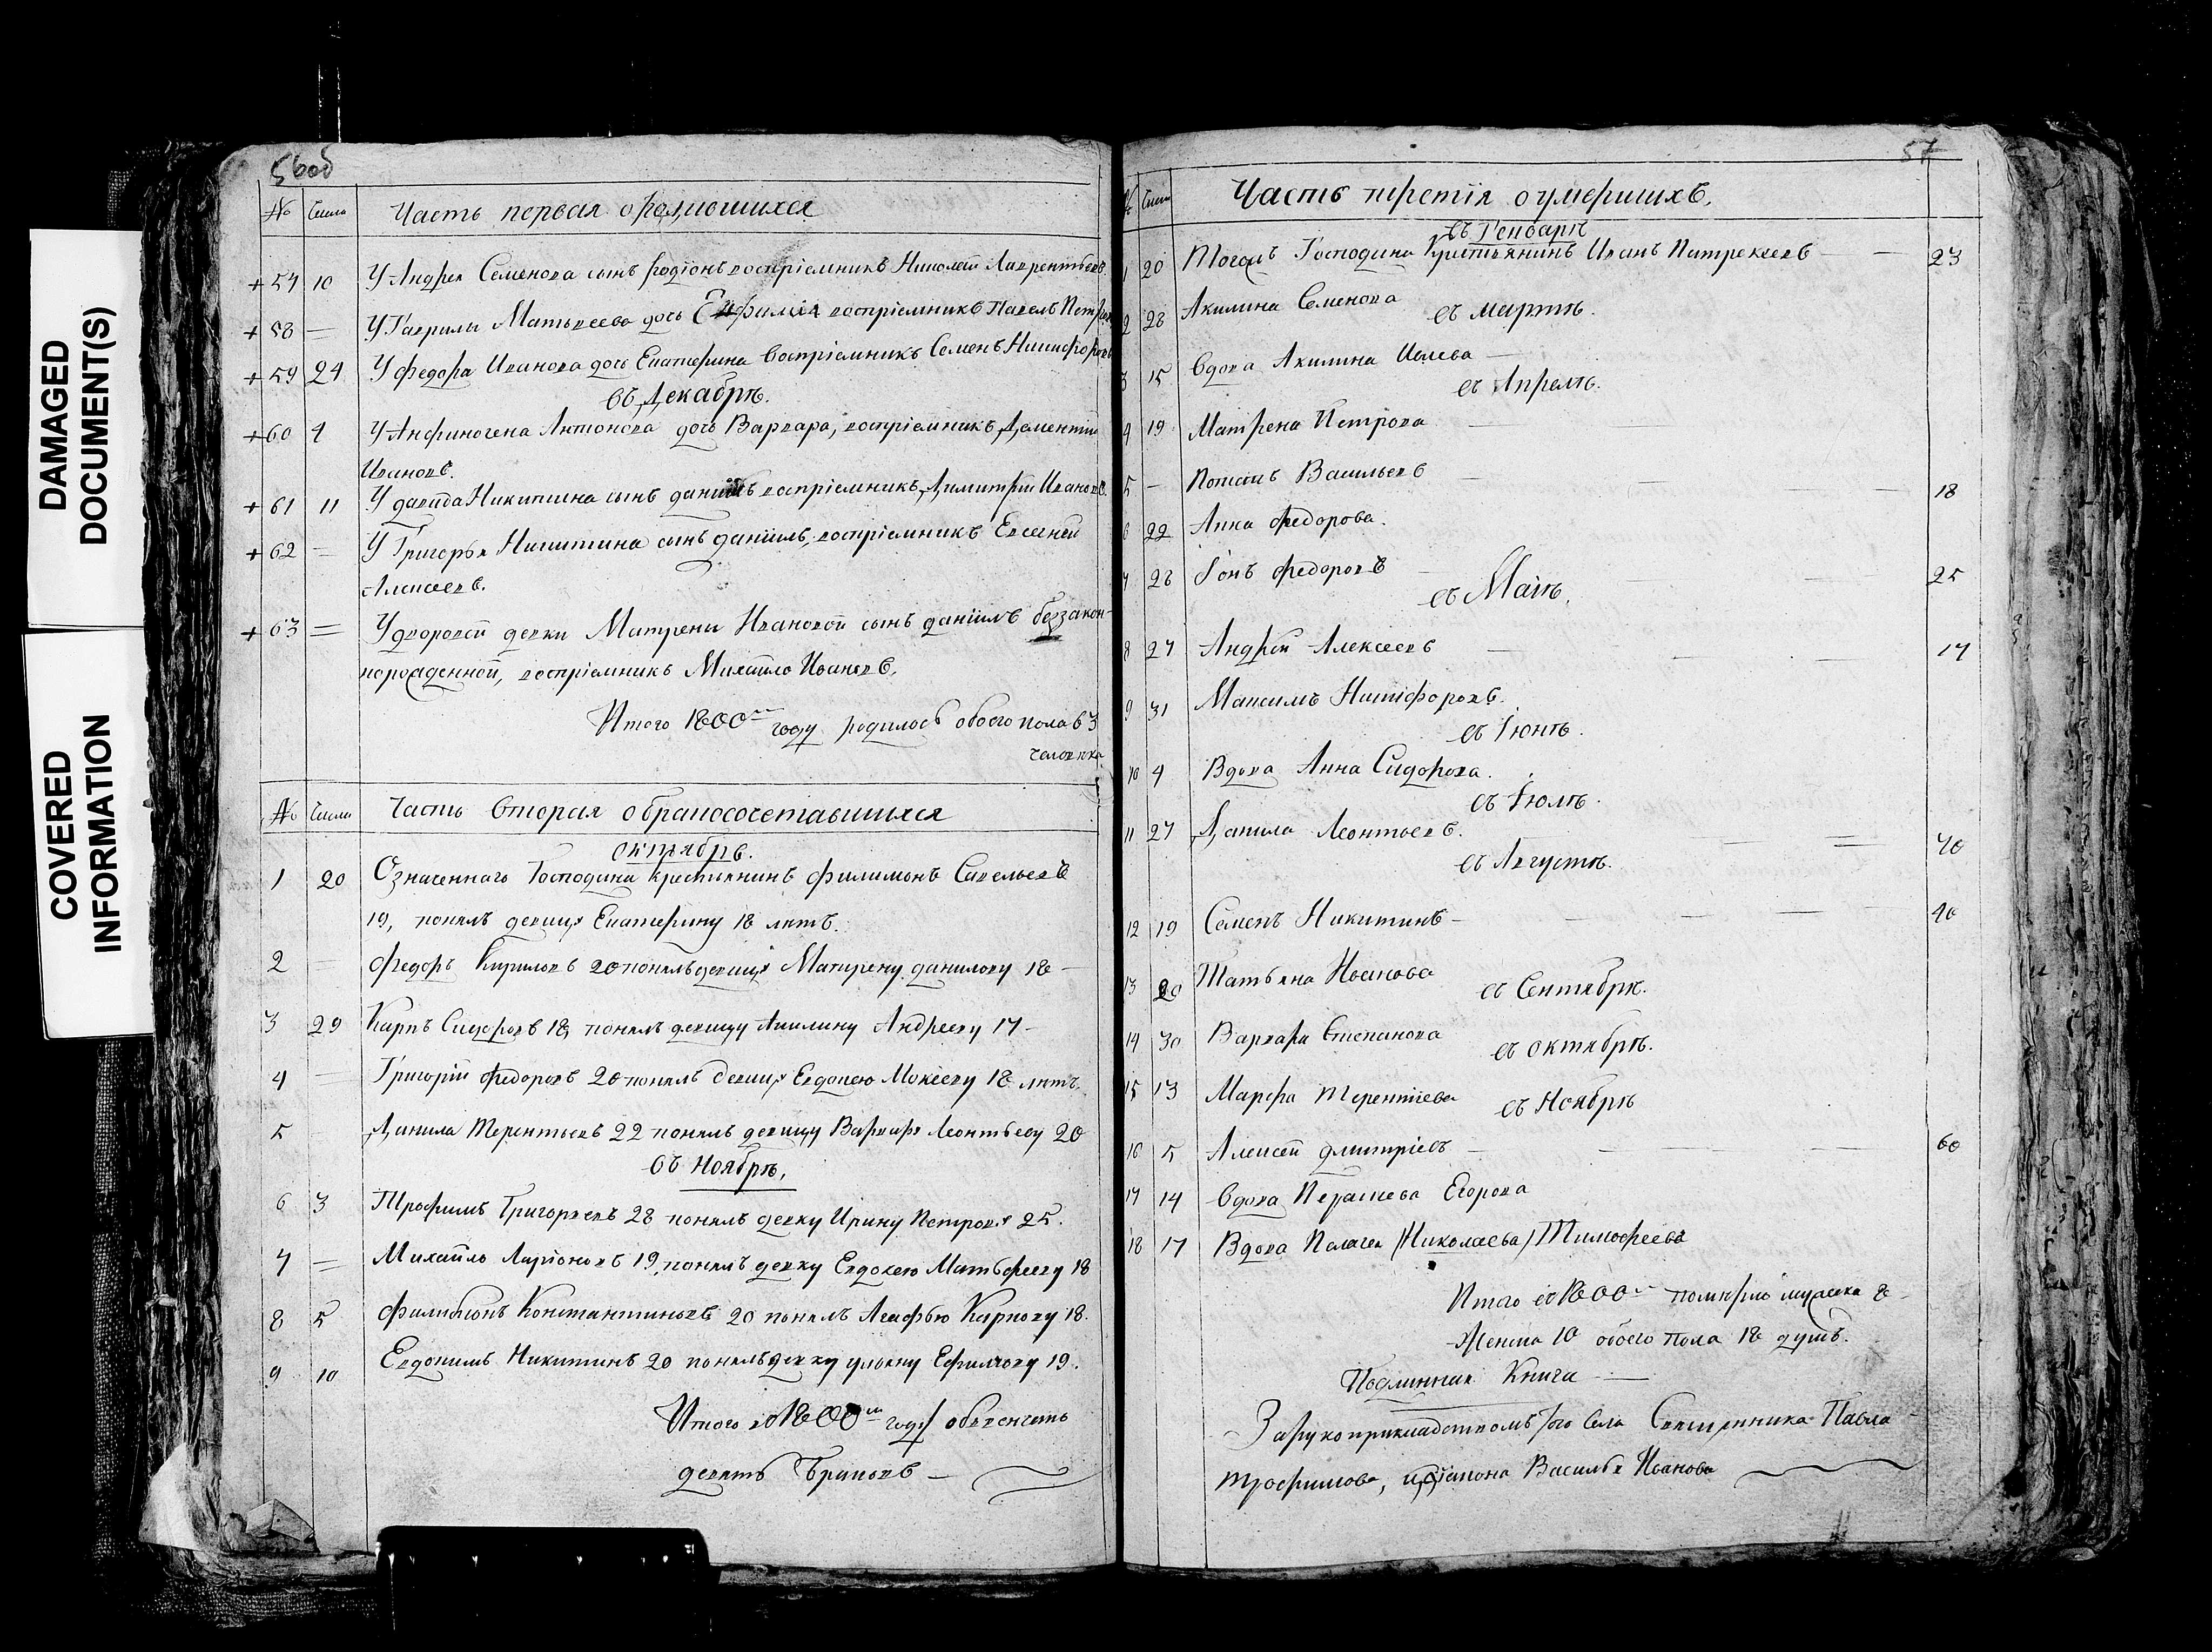 DAMAGED
DOCUMENT(S)
COVERED
INFORMATION
56об
№ Числа Часть первая о родившихся
+57 10 У Андрея Семенова сынъ Родіонъ воспріемникъ Николай Лаврентьевъ.
+58 — У Гаврилы Матвеева дочь Евфимія воспріемникъ Павелъ Петровъ
+59 24 У Федора Иванова дочь Екатерина воспріемникъ Семенъ Никифоровъ
въ Декабрѣ.
+60 4 У Анфиногена Антонова дочь Варвара, воспріемникъ Дементій
Ивановъ.
+61 11 У давида Никитина сынъ даніилъ воспріемникъ Димитрій Ивановъ.
+62 — У Григорья Никитина сынъ даніилъ, воспріемникъ Евсевей
Алексеевъ.
+63 = У дворовой девки Матрены Ивановой сынъ даніилъ беззакон-
норожденной, воспріемникъ Михайло Ивановъ.
Итого 1800го году родилось обоего пола 63
человѣка
№ Числа Часть вторая о бракосочетавшихся
октябрь.
1 20 Означеннаго Господина крестьянинъ Филимонъ Савельевъ
19, понялъ девицу Екатерину 18 лѣтъ.
2 — Федоръ Кириловъ 20 понялъ девицу Матрену данилову 18 —
3 29 Карпъ Сидоровъ 18, понялъ девицу Акилину Андрееву 17 —
4 — Григорій Федоровъ 20 понялъ девицу Евдокею Мокееву 18 лѣтъ.
5 Данила Терентьевъ 22 понялъ девицу Варвару Леонтьеву 20
въ Ноябрѣ.
6 3 Трофимъ Григорьевъ 28 понялъ девку Ирину Петрову 25.
7 = Михайло Ларіоновъ 19, понялъ девку Евдокею Матвфееву 18
8 5 Филимонъ Константиновъ 20 понялъ Агафью Карпову 18.
9 10 Евдокимъ Никитинъ 20 понялъ девку ульяну Ефимову 19.
Итого въ 1800м году обвенчано
девять Браковъ —
57
№ Числа Часть третія о умершихъ.
въ Генварѣ
1 20 Тогожъ Господина Крестьянинъ Иванъ Патрекеевъ — — 23
2 28 Акилина Семенова
въ мартѣ.
3 15 Вдова Акилина Ивлева —
въ Апрелѣ.
4 19 Матрена Петрова —
5 — Потапъ Васильевъ — 18
6 22 Анна Федорова.
7 28 Іонъ Федоровъ — 25
въ Маіѣ.
8 27 Андрей Алексеевъ — 17
9 31 Максимъ Никифоровъ.
въ Іюнѣ.
10 4 Вдова Анна Сидорова.
въ Іюлѣ.
11 27 Данила Леонтьевъ. 70
въ Августѣ.
12 19 Семенъ Никитинъ — 40
13 20 Татьяна Иванова
въ Сентябрѣ.
14 30 Варвара Степанова
въ октябрѣ.
15 13 Марфа Терентіева
въ Ноябрѣ
16 5 Алексей дмитріевъ — 60
17 14 Вдова Перасиева Егорова
18 17 Вдова Пелагея /Николаева/ Тимофеева
Итого въ 1800м померло мужска 8 —
Женска 10 обоего пола 18 душъ.
Подлинная Книга —
За рукоприкладствомъ того Села Священника Павла
трофимова, идіакона Василья Иванова